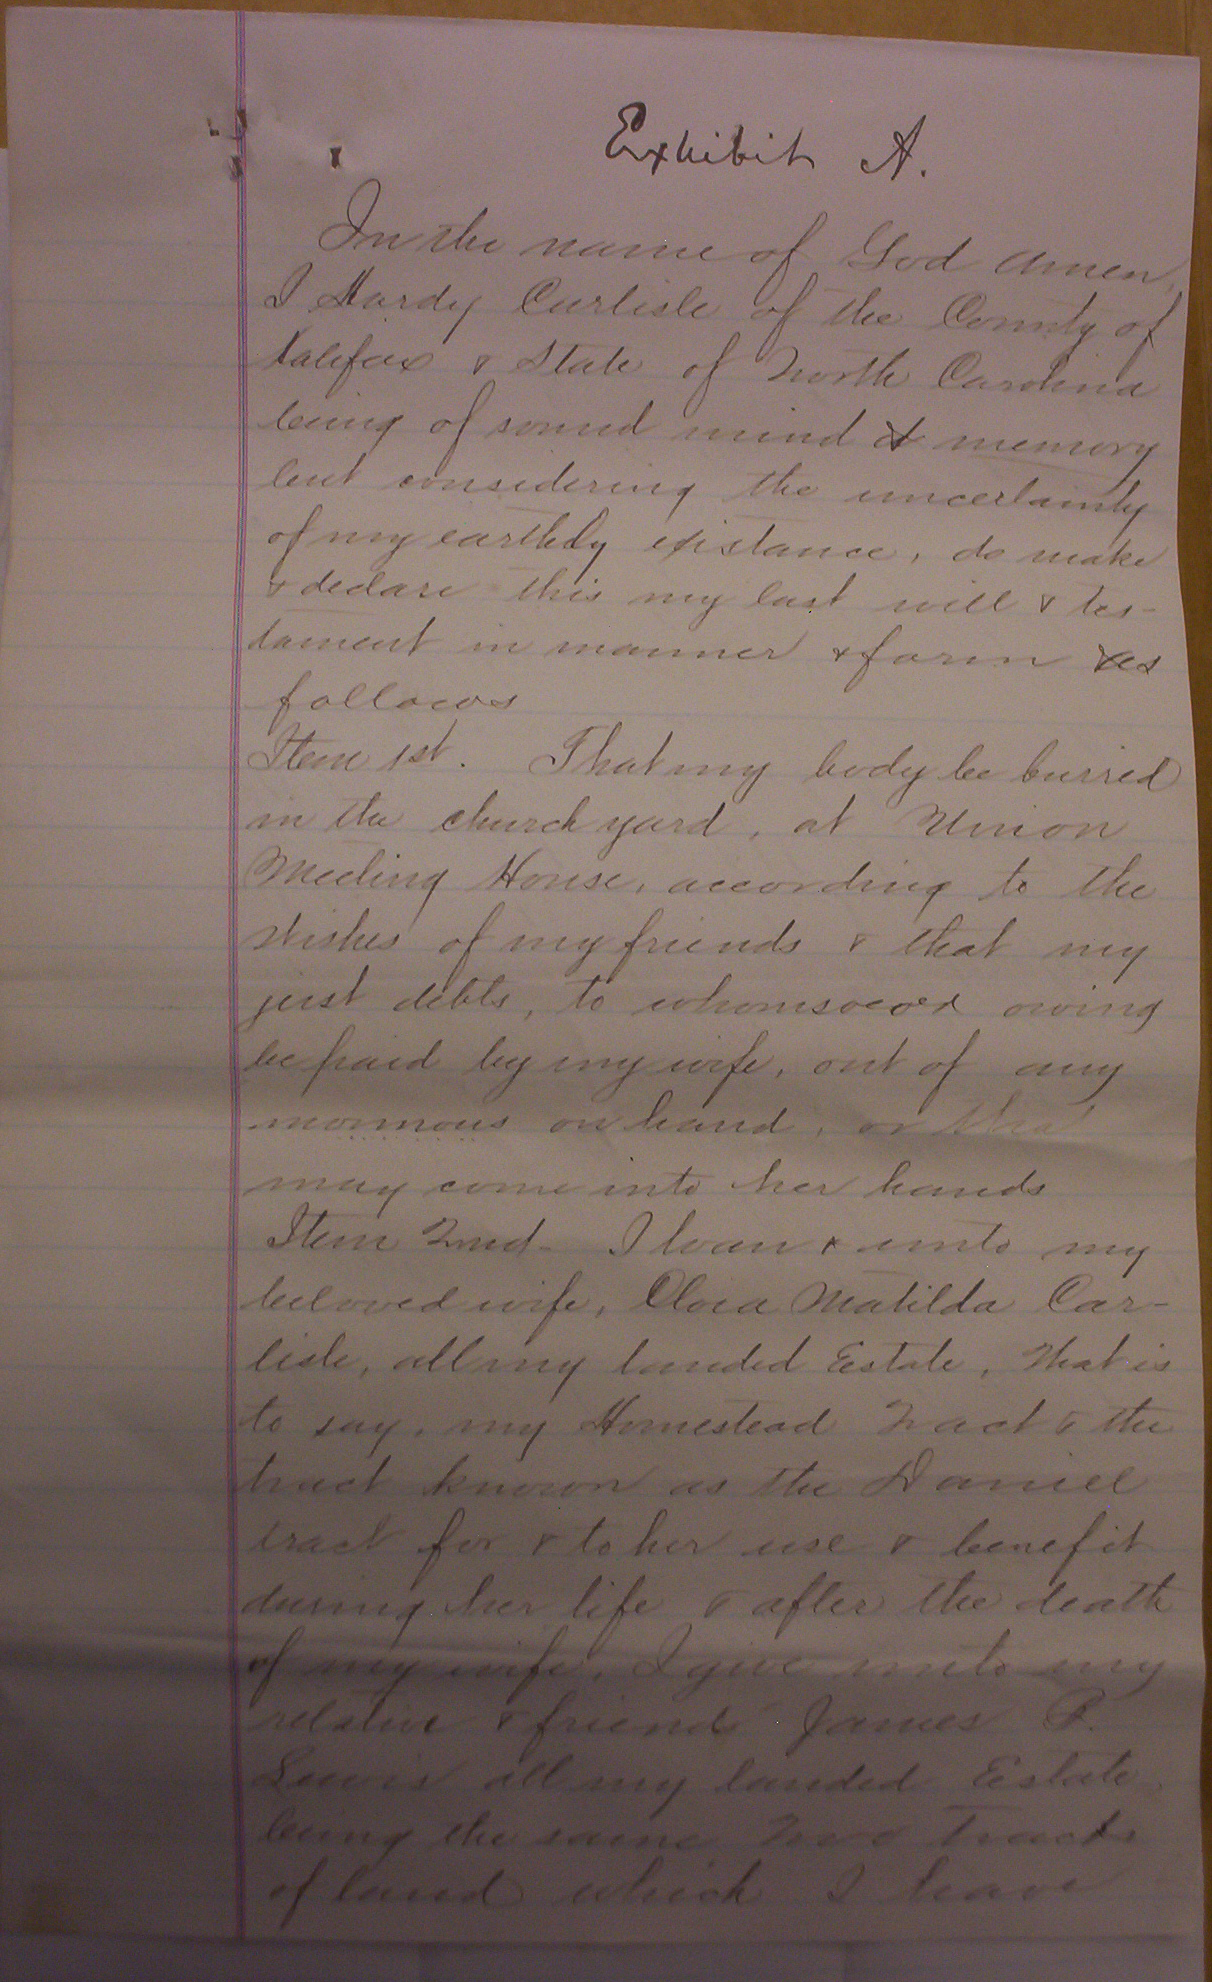 Exhibit A.
In the name of God Amen,
I Hardy Carlisle of the County of
Halifax & State of North Carolina
being of sound mind & memory
but considering the uncertainty
of my earthly existance, do make
& declare this my last will & tes-
tament in manner & form as
follows
Item 1st. That my body be burried
in the church yard, at Union
Meeting House, according to the
wishes of my friends & that my
just debts, to whomsoever owing
be paid by my wife, out of any
on hand, or
may come into her hands
Item 2nd- I loan & unto my
beloved wife, Matilda Car-
lisle, all my landed Estate, that is
to say, my Homestead Tract & the
tract known as the Daniel
tract for & to her use & benefit
during her life & after the death
of my wife, I give unto my
relative & friend James P.
Lewis all my landed Estate
being the same two tracts
of land which I leave